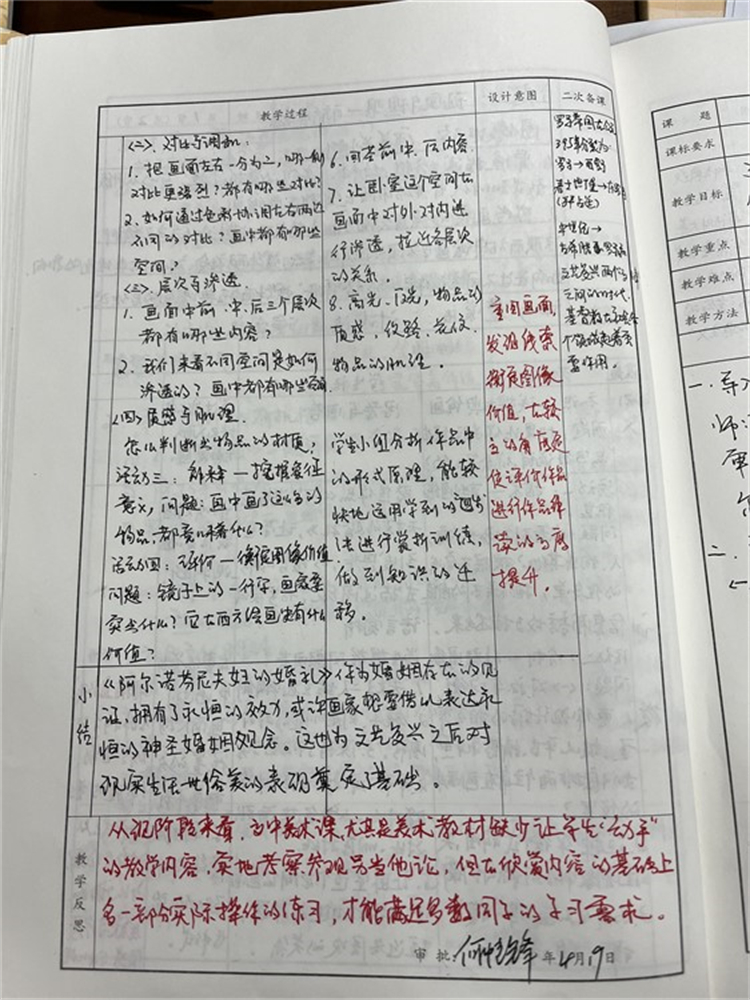 教学过程
设计意图
二次备课
(二). 对比与调和:
1. 把画面左右一分为二,哪一侧
对比更强烈?都有哪些对比?
2. 如何通过色彩协调左右两边
不同的对比?画中都有哪些
空间?
(三). 层次与渗透.
1. 画面中前、中、后三个层次
都有哪些内容?
2. 我们来看不同空间是如何
渗透的?画中都有哪些
(四) 质感与肌理.
怎么判断出物品的材质,
活动三:解释—挖掘象征
意义,问题:画中画了这么多的
物品都意味着什么?
活动四:评价—衡定图像价值
问题:镜子上的一行字,画家要
突出什么?它在西方绘画史有什么
价值?
6. 回答前、中、后内容.
7. 让卧室这个空间在
画面中对外对内进
行渗透,拉近各层次
的关系.
8. 高光、反光,物品的
质感,纹路、花纹.
物品的肌理.
学生小组分析作品中
的形式原理,能较
快地运用学到的"四步"
法进行赏析训练,
做到知识的迁
移.
重回画面,
发现线索
衡定图像
价值,在较
高的角度定
位评价作品
进行作品解
读的高度
提升.
罗马帝国在公元
395年分裂为
之间的时代.
基督教在
要作用.
小结
《阿尔诺芬尼夫妇的婚礼》作为婚姻存在的见
证,拥有了永恒的效力,或许画家想要借以表达永
恒的神圣婚姻观念。这也为文艺复兴之后对
现实生活世俗美的表现奠定了基础。
教学反思
从现阶段来看,高中美术课,尤其是美术教材缺少让学生"动手"
的教学内容,实地考察参观另当他论,但在欣赏内容的基础上
多一部分实际操作的练习,才能满足多数同学的学习需求。
审批:
年4月19日
课题
课标要求
教学目标
教学重点
教学难点
教学方法
一. 导入
二.